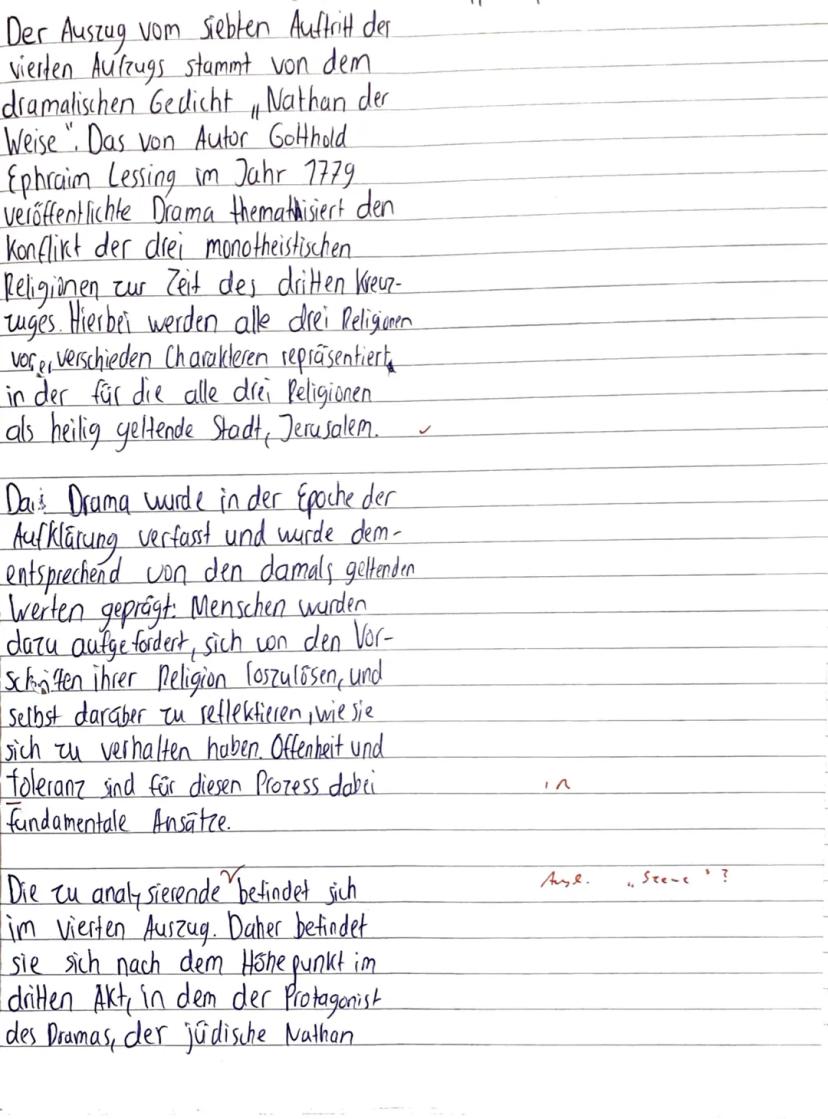 Der Auszug vom siebten Auftritt der
vierten Aufzugs stammt von dem
dramatischen Gedicht „Nathan der
Weise". Das von Autor Gotthold
Ephraim Lessing im Jahr 1779
veröffentlichte Drama themathisiert den
Konflikt der drei monotheistischen
Religionen zur Zeit des dritten Kreuz-
zuges. Hierbei werden alle drei Religionen
verschieden Charakteren repräsentiert,
in der für die alle drei Religionen
als heilig geltende Stadt, Jerusalem. ✓
Das Drama wurde in der Epoche der
Aufklärung verfasst und wurde dem-
entsprechend von den damals geltenden
Werten geprägt: Menschen wurden
dazu aufgefordert, sich von den Vor-
schriften ihrer Religion loszulösen, und
selbst darüber zu reflektieren, wie sie
sich zu verhalten haben. Offenheit und
toleranz sind für diesen Prozess dabei
fundamentale Ansätze.
Die zu analysierende befindet sich Ausl. „Szene"?
im vierten Auszug. Daher befindet
sie sich nach dem Höhepunkt im
dritten Akt, in dem der Protagonist
des Dramas, der jüdische Nathan